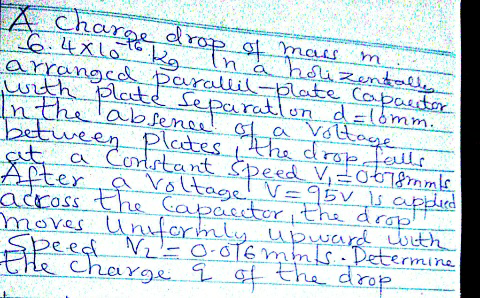 A charge drop of mass m
6.4x10^-16 kg in a horizontally
arranged parallel-plate capacitor
with plate separation d=10mm.
In the absence of a voltage
between plates, the drop falls
at a constant speed V1=0.078mm/s.
After a voltage V=95v is applied
across the capacitor, the drop
moves uniformly upward with
speed V2=0.016mm/s. Determine
the charge q of the drop